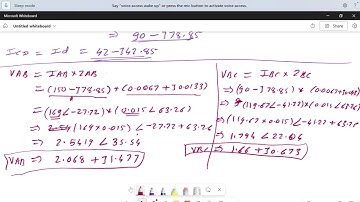 Sleep mode
Say "voice access wake up" or press the mic button to activate voice access.
Microsoft Whiteboard
Untitled whiteboard
⇒ 90-j78.85
Icd = Id = 42-j42.85
VAB = IAB × ZAB
= (150-j78.85) * (0.0067+j0.0133)
⇒ (169∠-27.72) * (0.015∠63.26)
⇒ (169×0.015)∠-27.72+63.26
⇒ 2.5419∠35.54
VAB ⇒ 2.068+j1.477
VBC = IBC × ZBC
⇒ (119.67∠-41.22)*(0.015∠63.26)
⇒ (119.67×0.015)∠-41.22+63.26
⇒ 1.794∠22.04
VBC ⇒ 1.66+j0.673